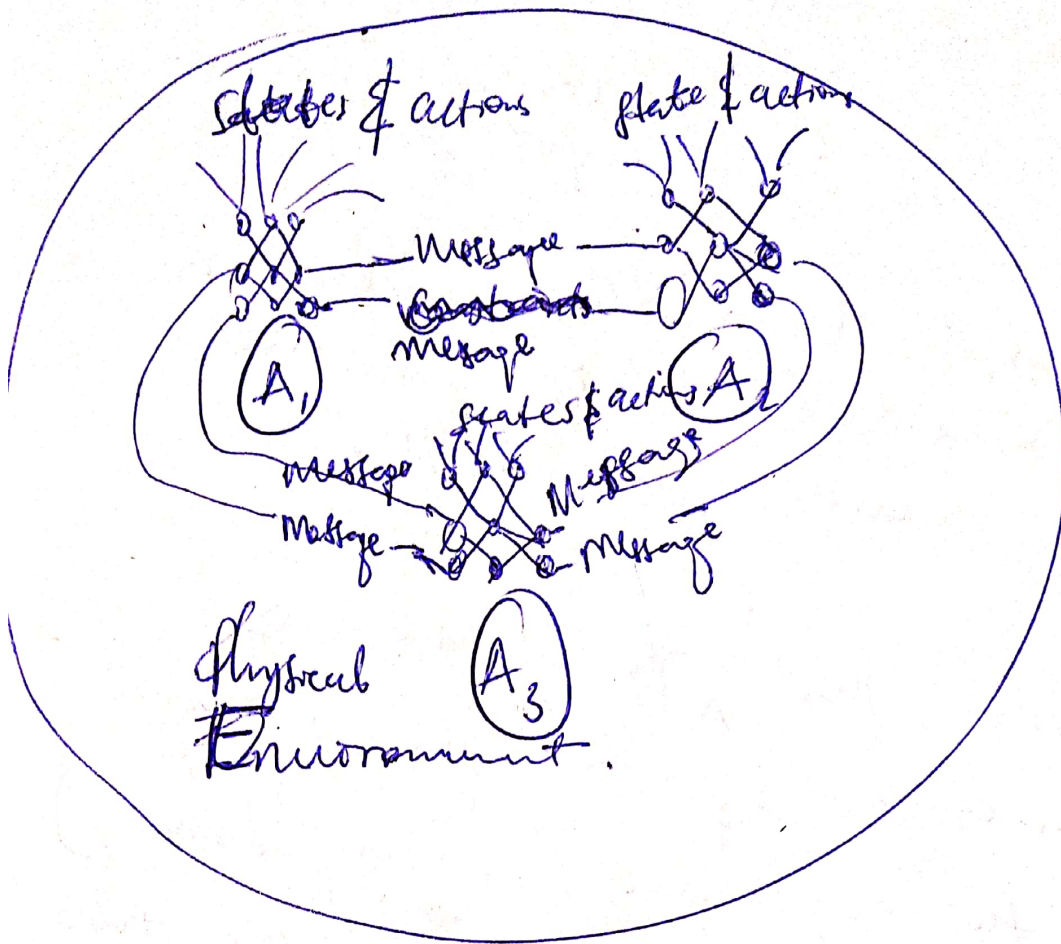 states & actions
state & actions
Message
Message
A1
A2
states & actions
Message
Message
Message
Message
A3
Physical
Environment.